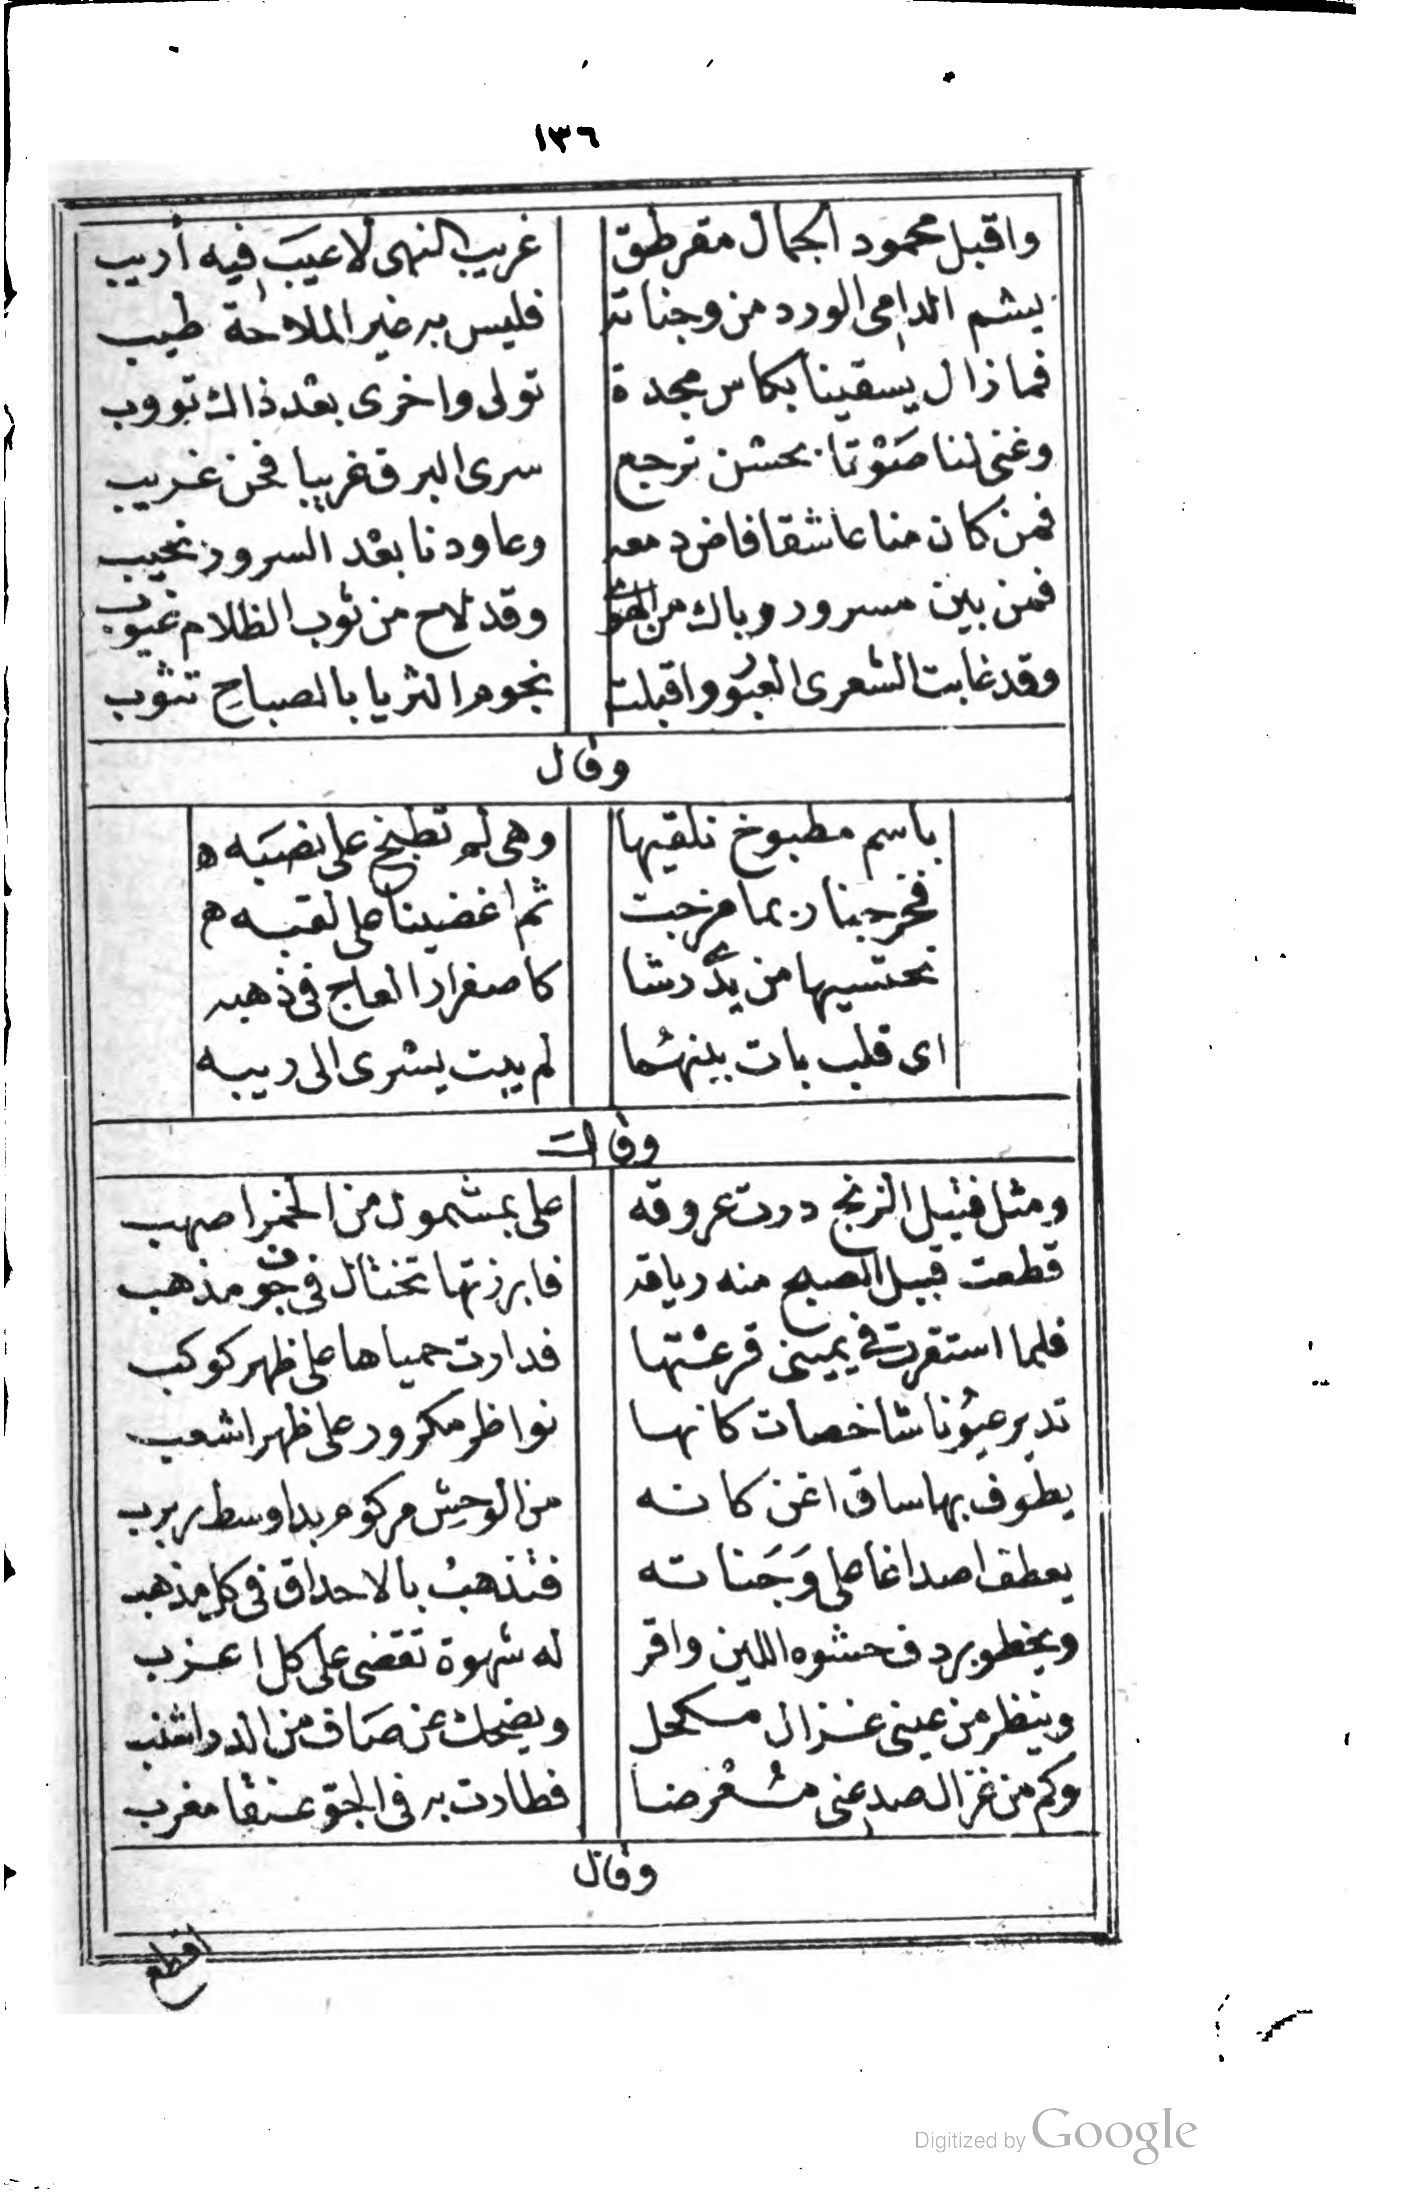 ١٣٦
واقبل محمود الجمال مقرطق غريب النهى لا عيبَ فيه أريب
يشم الندامى الورد من وجناته فليس به غير الملاحة طيب
فما زال يسقينا بكاس مجدة تولى واخرى بعد ذاك تووب
وغنى لنا صَوْتا بحسن ترجع سرى البرق غربيا فحن غريب
فمن كان منا عاشقا فاض دمعه وعاودنا بعد السرور نحيب
فمن بين مسرور وباك من الهوى وقد لاح من ثوب الظلام غيوب
وقد غابت الشعرى العبور واقبلت نجوم الثريا بالصباح تثوب
وقال
باسم مطبوخ نلقيها وهى لم تطبخ على نصبَه ه
فخرجنا ربما مزجت ثم اغضينا على لقبه ه
نحتسيها من يدَى رشا كاصفرار العاج فى ذهبه
اى قلب بات بينهُما لم يبت يسرى الى ريبه
وقال
ومثل فتيل الزنج درت عروقه على بمشمول من الخمر اصهب
قطعت قبيل الصبح منه رياقه فابرزتها تختال فى جوف مذهب
فلما استقرت فى يمينى قرعتها فدارت حمياها على ظهر كوكب
تدير عيُونا شاخصات كانها نواظر مكرور على ظهر اشعب
يطوف بها ساق اغن كانه من الوحش مركوم بدا وسط ربرب
يعطف اصداغا على وَجَناته فتذهبُ بالاحداق فى كل مذهب
ويخطو بردف حشوه اللين واقر له شهوة تقضى على كل اعزب
وينظر من عينى غزال مكحل ويضحك عن صاف من الدر اشنب
وكم من غزال صد عنى مُعْرضا فطارت به فى الجوّ عنقا مغرب
وقال
اقطع
Digitized by Google